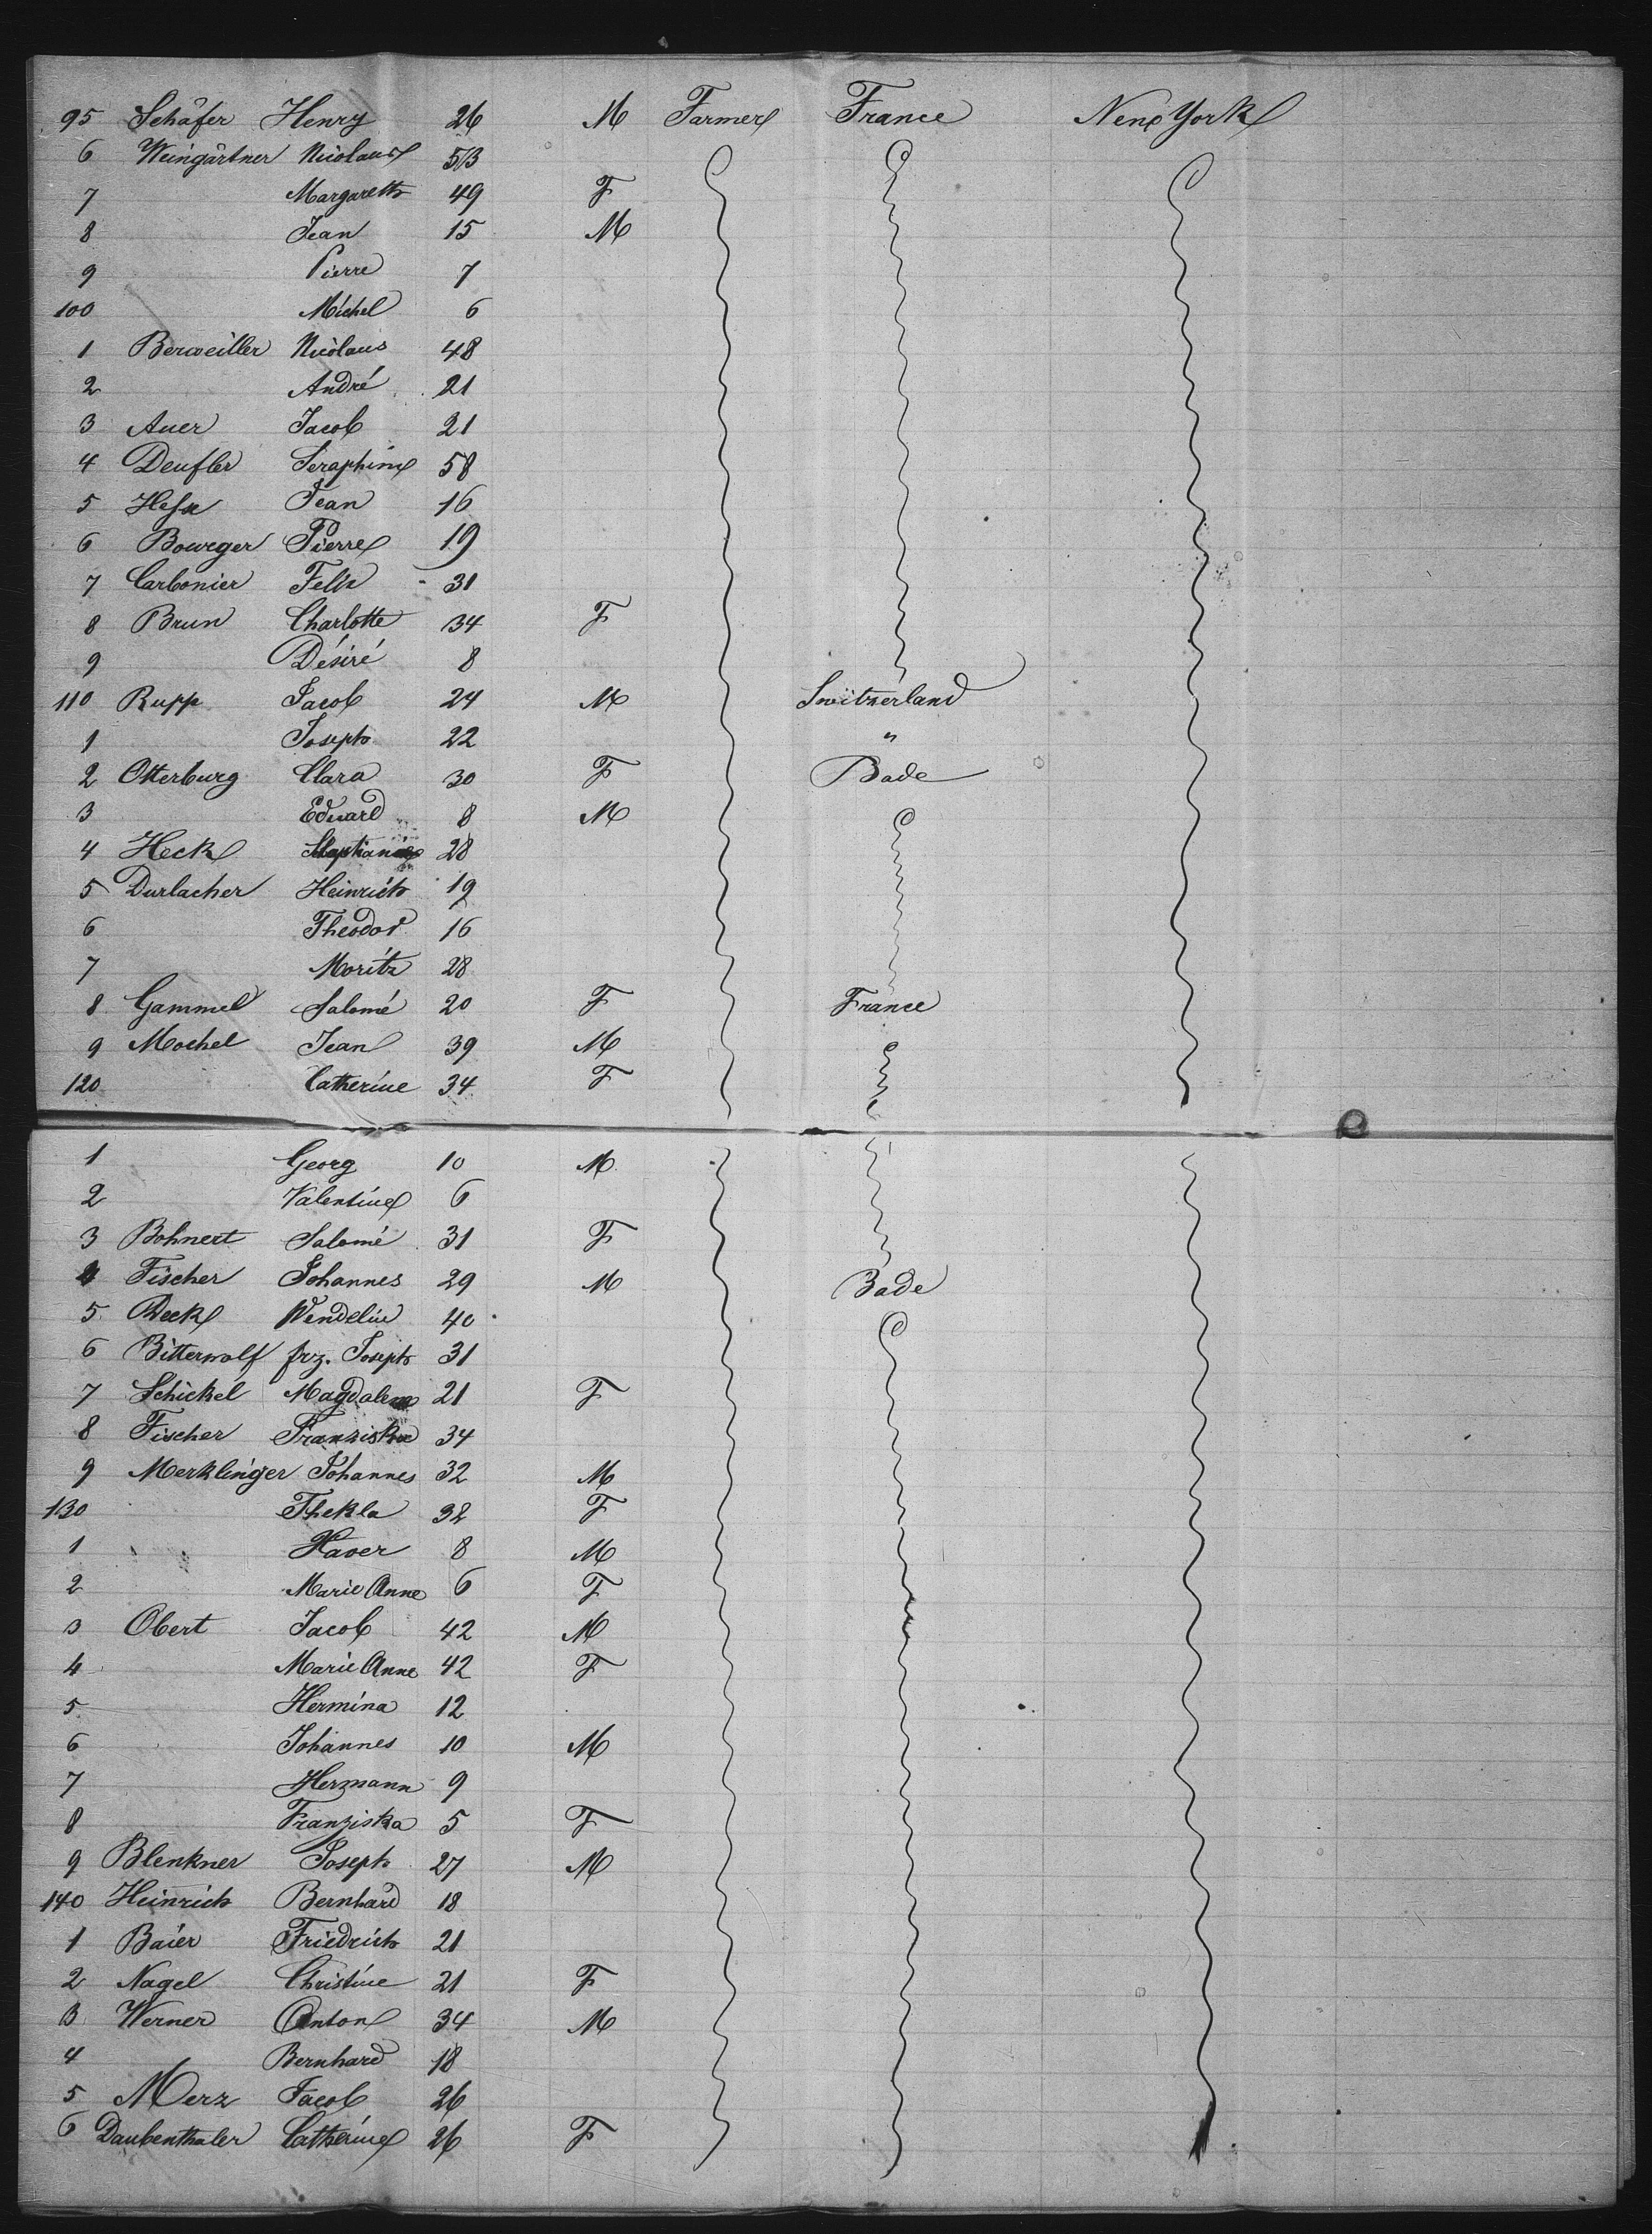 95 Schäfer Henry 26 M Farmer France New York
6 Weingärtner Nicolaus 53
7 Margareth 49 F
8 Jean 15 M
9 Pierre 7
100 Michel 6
1 Berweiller Nicolaus 48
2 André 21
3 Auer Jacob 21
4 Deufler Seraphine 58
5 Hesse Jean 16
6 Bourger Pierre 19
7 Carbonier Felix 31
8 Brun Charlotte 34 F
9 Désiré 8
110 Rupp Jacob 24 M Switzerland
1 Joseph 22 "
2 Otterburg Clara 30 F Bade
3 Eduard 8 M
4 Heck 28
5 Durlacher Heinrich 19
6 Theodor 16
7 Moritz 28
8 Gammel Salomé 20 F France
9 Mochel Jean 39 M
120 Catherine 34 F
1 Georg 10 M
2 Valentine 6
3 Bohnert Salomé 31 F
4 Fischer Johannes 29 M Bade
5 Beck Wendelin 40
6 Bitterwolf frz. Joseph 31
7 Schickel Magdalena 21 F
8 Fischer Franziska 34
9 Merklinger Johannes 32 M
130 Thekla 32 F
1 Xaver 8 M
2 Marie Anne 6 F
3 Obert Jacob 42 M
4 Marie Anne 42 F
5 Hermina 12
6 Johannes 10 M
7 Hermann 9
8 Franziska 5 F
9 Blenkner Joseph 27 M
140 Heinrich Bernhard 18
1 Baier Friedrich 21
2 Nagel Christine 21 F
3 Werner Anton 34 M
4 Bernhard 18
5 Merz Jacob 26
6 Daubenthaler Catherine 26 F